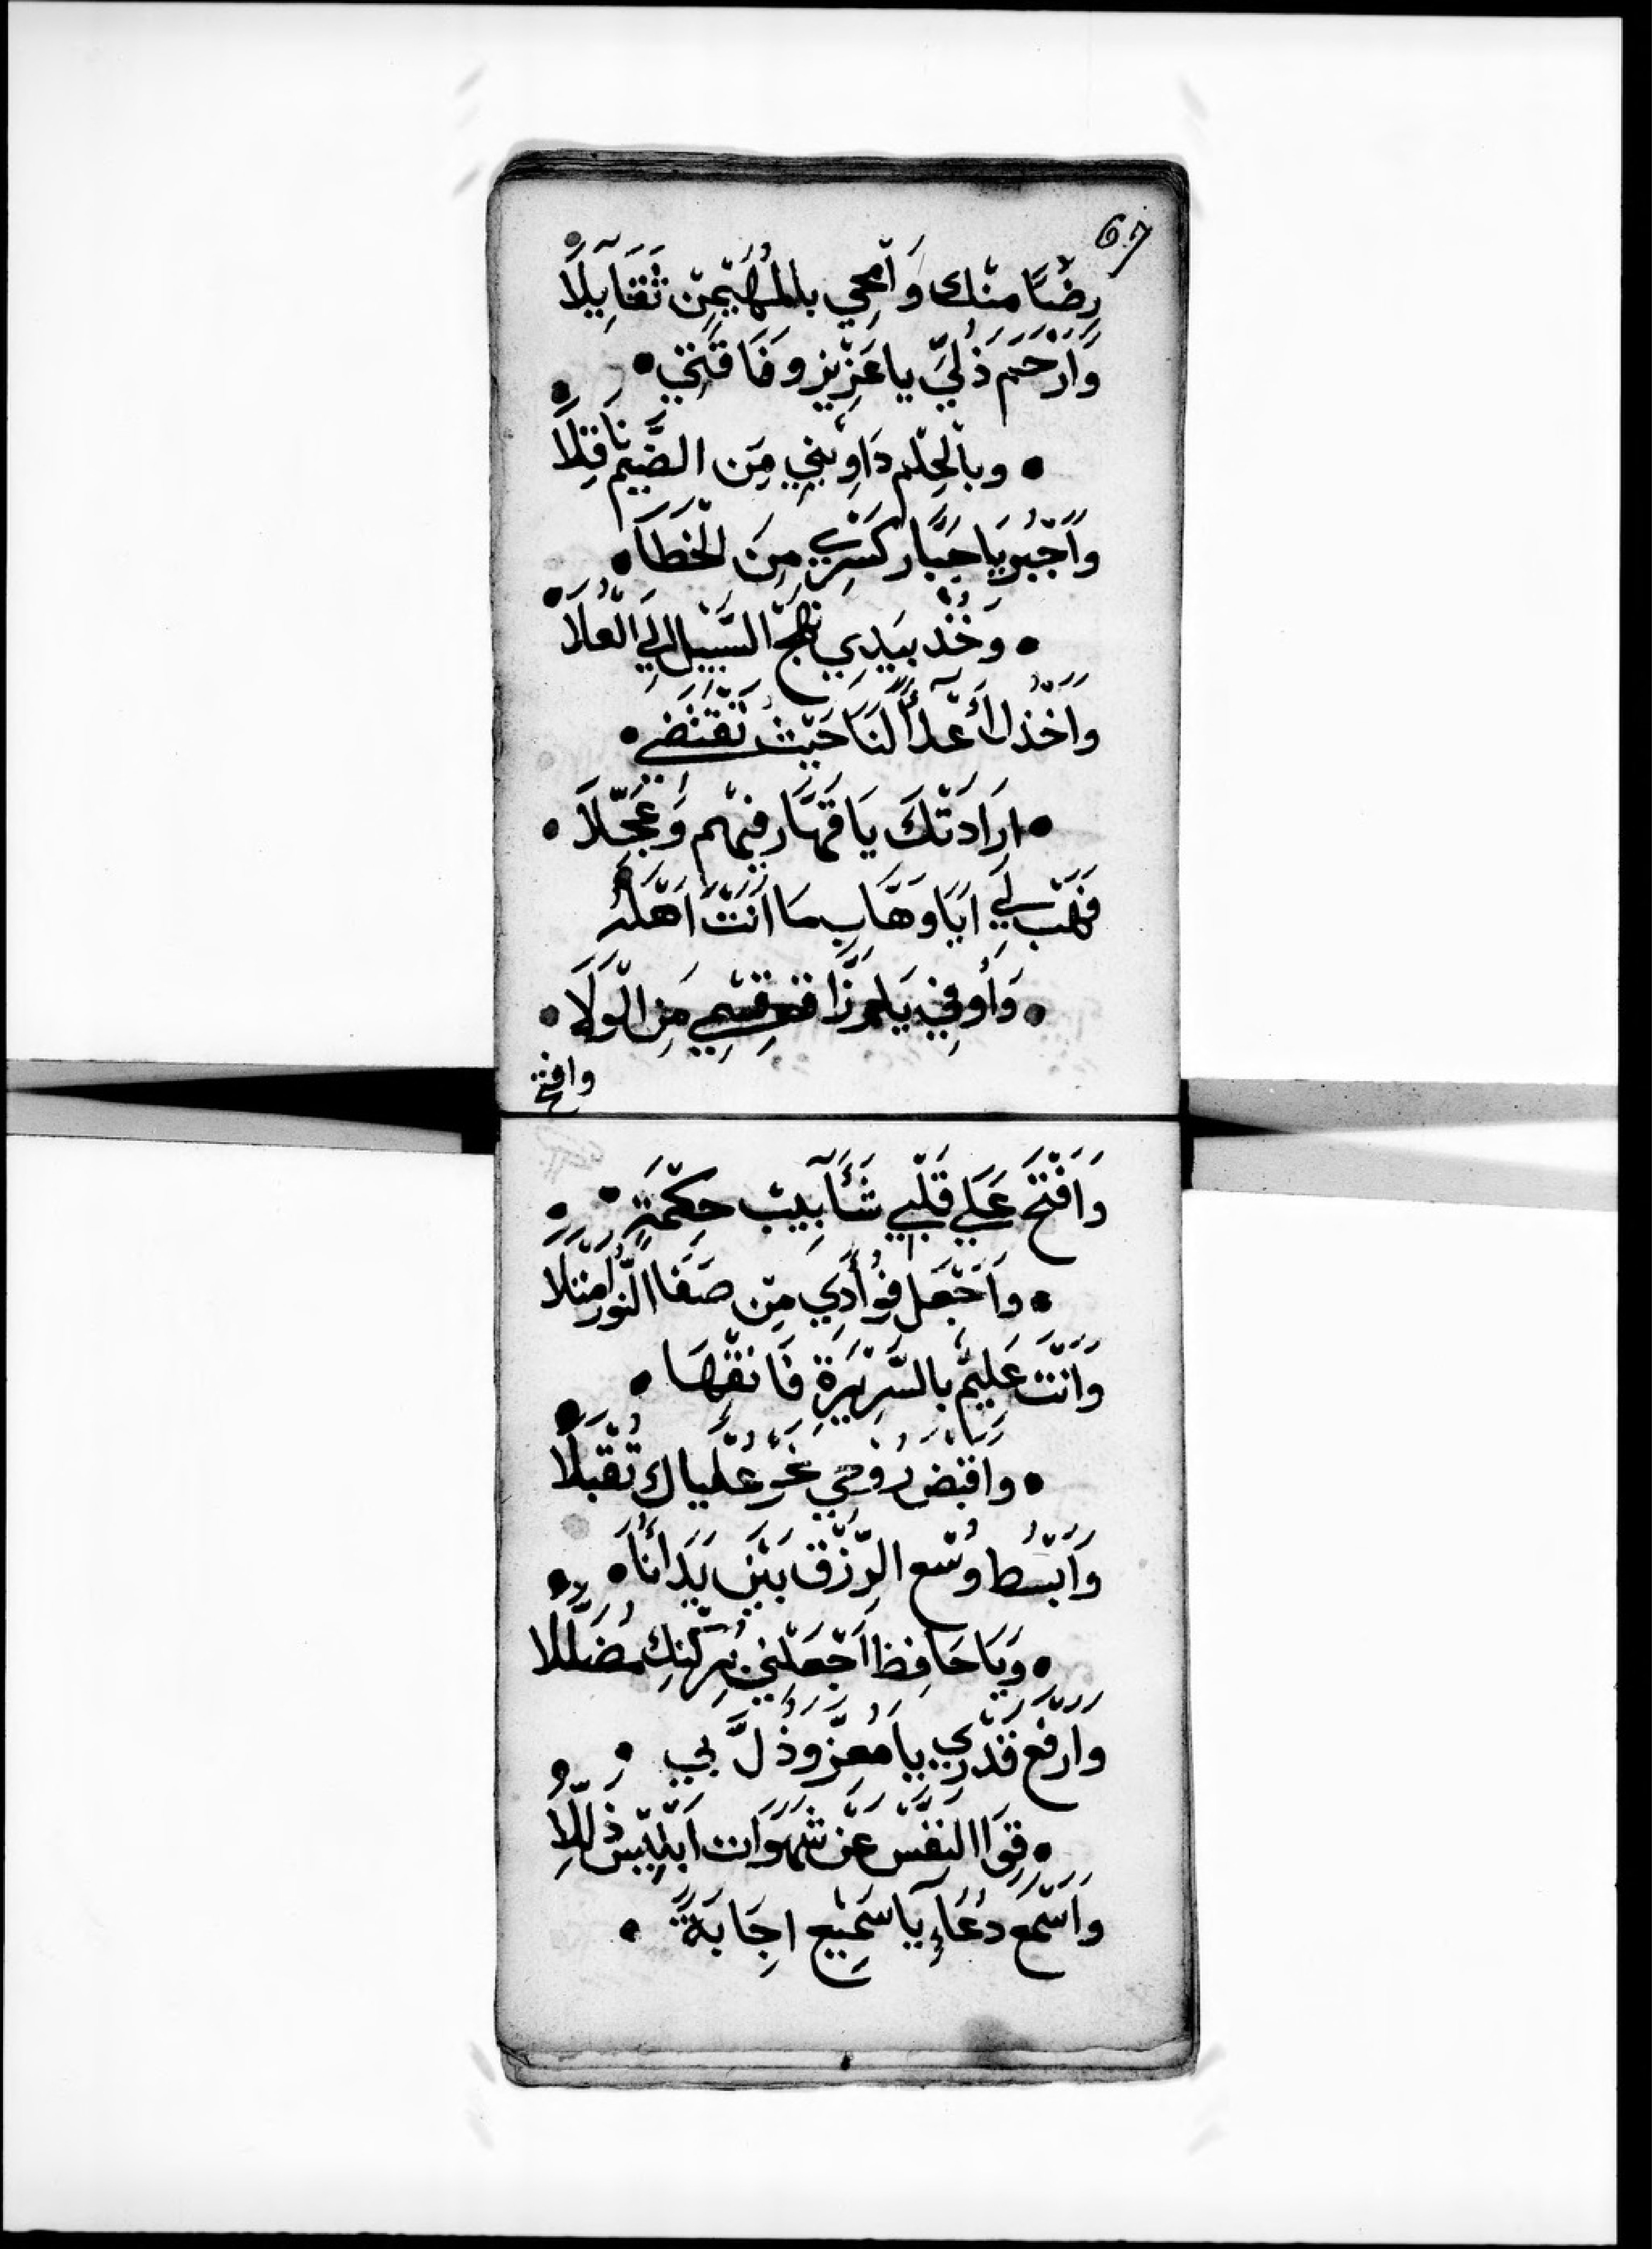 67
رِضًا مِنْك وَأَمْحِي بالمُهَيْمِنْ ثَقَايِلَا
وَارْحَمَ ذُلِيَّ يا عَزِيْز وفَاقَتِي •
• وبالْحِلْم دَاوِيْنِي مِنَ الضَّيْم نَاقِلَا
واجْبُر يَا جَبَّار كَسْرِي مِنَ الْخَطَاَ •
• وَخُذْ بيَدِي نهج السَّبِيْل اِلَي الْعُلَا
واخْذُل أَعْدآً لَنَا حَيْثُ تَقْتَضِي •
• اِرَادَتْكَ يَا قَهَّار فِيْهم وَعَجِّلَا •
فَهَبْ لِي اَيَا وَهَّاب مَا اَنْتَ اَهْلَهُ
• وَأُوفِي يَا رزَّاق قِسْمِي مَن الْوَلَا •
وافتح
وَافْتَحَ عَلَي قَلْبِي شَئَآبِيْب حِكْمَةٍ •
• واَجْعَل فُوأَدِي مِنْ صَفَا النُّور اَمْتَلَا
وَانْتَ عَلِيْمٌ بالسَّرِيْرَةِ فَانْقِهَا •
• واقبض رُوْحِي عَلْياك تُقْبَلَا
وَابْسُط وُسْع الرِّزْق بَيْن يَدَاأَنَا •
• وَيَا حَافِظ اَجْعَلْنِي مُضَلَّلَا
وَارْفَع قَدْرِي يا مُعِزّ وَذُلَّ بي •
• قِوَا النفْسَ عَنْ شَهَوَات اَبْلِيْسْ ذُلِّلَا
واَسْمَعَ دُعَاءِ يَآ سَمِيْع اِجَابَةً •